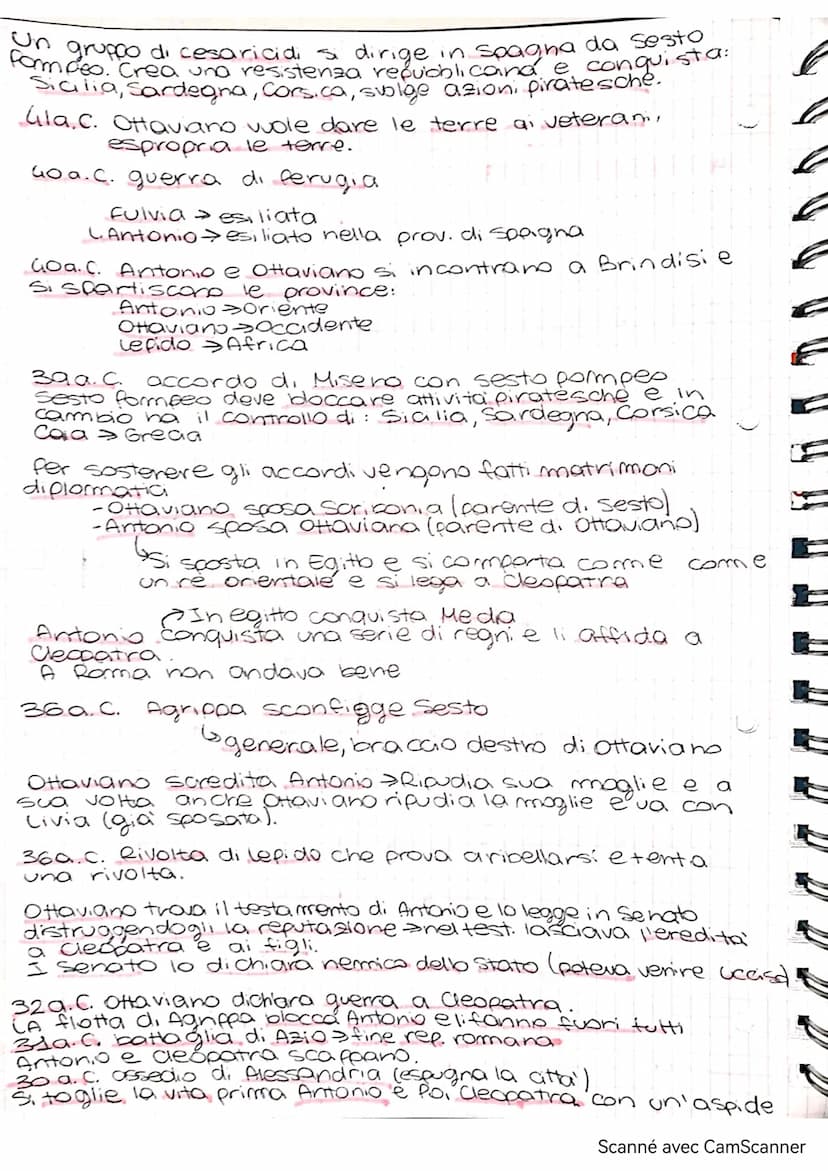 Un gruppo di cesaricidi si dirige in Spagna da Sesto
Pompeo. Crea una resistenza repubblicana e conquista:
Sicilia, Sardegna, Corsica, svolge azioni piratesche.
41a.C. Ottaviano vuole dare le terre ai veterani,
espropria le terre.
40 a.C. guerra di Perugia
Fulvia → esiliata
L. Antonio → esiliato nella prov. di Spagna
40a.C. Antonio e Ottaviano si incontrano a Brindisi e
si spartiscono le province:
Antonio → Oriente
Ottaviano → Occidente
Lepido → Africa
39a.C. accordo di Miseno con Sesto Pompeo
Sesto Pompeo deve bloccare attività piratesche e in
cambio ha il controllo di: Sicilia, Sardegna, Corsica
→ Grecia
Per sostenere gli accordi vengono fatti matrimoni
diplomatici
- Ottaviano sposa Scribonia (parente di Sesto)
- Antonio sposa Ottaviana (parente di Ottaviano)
↳ Si sposta in Egitto e si comporta come come
un re orientale e si lega a Cleopatra
↗ In egitto conquista Media
Antonio conquista una serie di regni e li affida a
Cleopatra.
A Roma non andava bene
36a.C. Agrippa sconfigge Sesto
↳ generale, braccio destro di Ottaviano
Ottaviano scredita Antonio → Ripudia sua moglie e a
sua volta anche Ottaviano ripudia la moglie e va con
Livia (già sposata).
36a.C. Rivolta di Lepido che prova a ribellarsi e tenta
una rivolta.
Ottaviano trova il testamento di Antonio e lo legge in Senato
distruggendogli la reputazione → nel test. lasciava l'eredità
a cleopatra e ai figli.
I senato lo dichiara nemico dello Stato (poteva venire ucciso)
32a.C. Ottaviano dichiara guerra a Cleopatra.
LA flotta di Agrippa blocca Antonio e li fanno fuori tutti
31a.C. battaglia di Azio → fine rep. romana
Antonio e cleopatra scappano.
30 a.C. assedio di Alessandria (espugna la città)
Si toglie la vita prima Antonio e poi Cleopatra con un'aspide
Scanné avec CamScanner